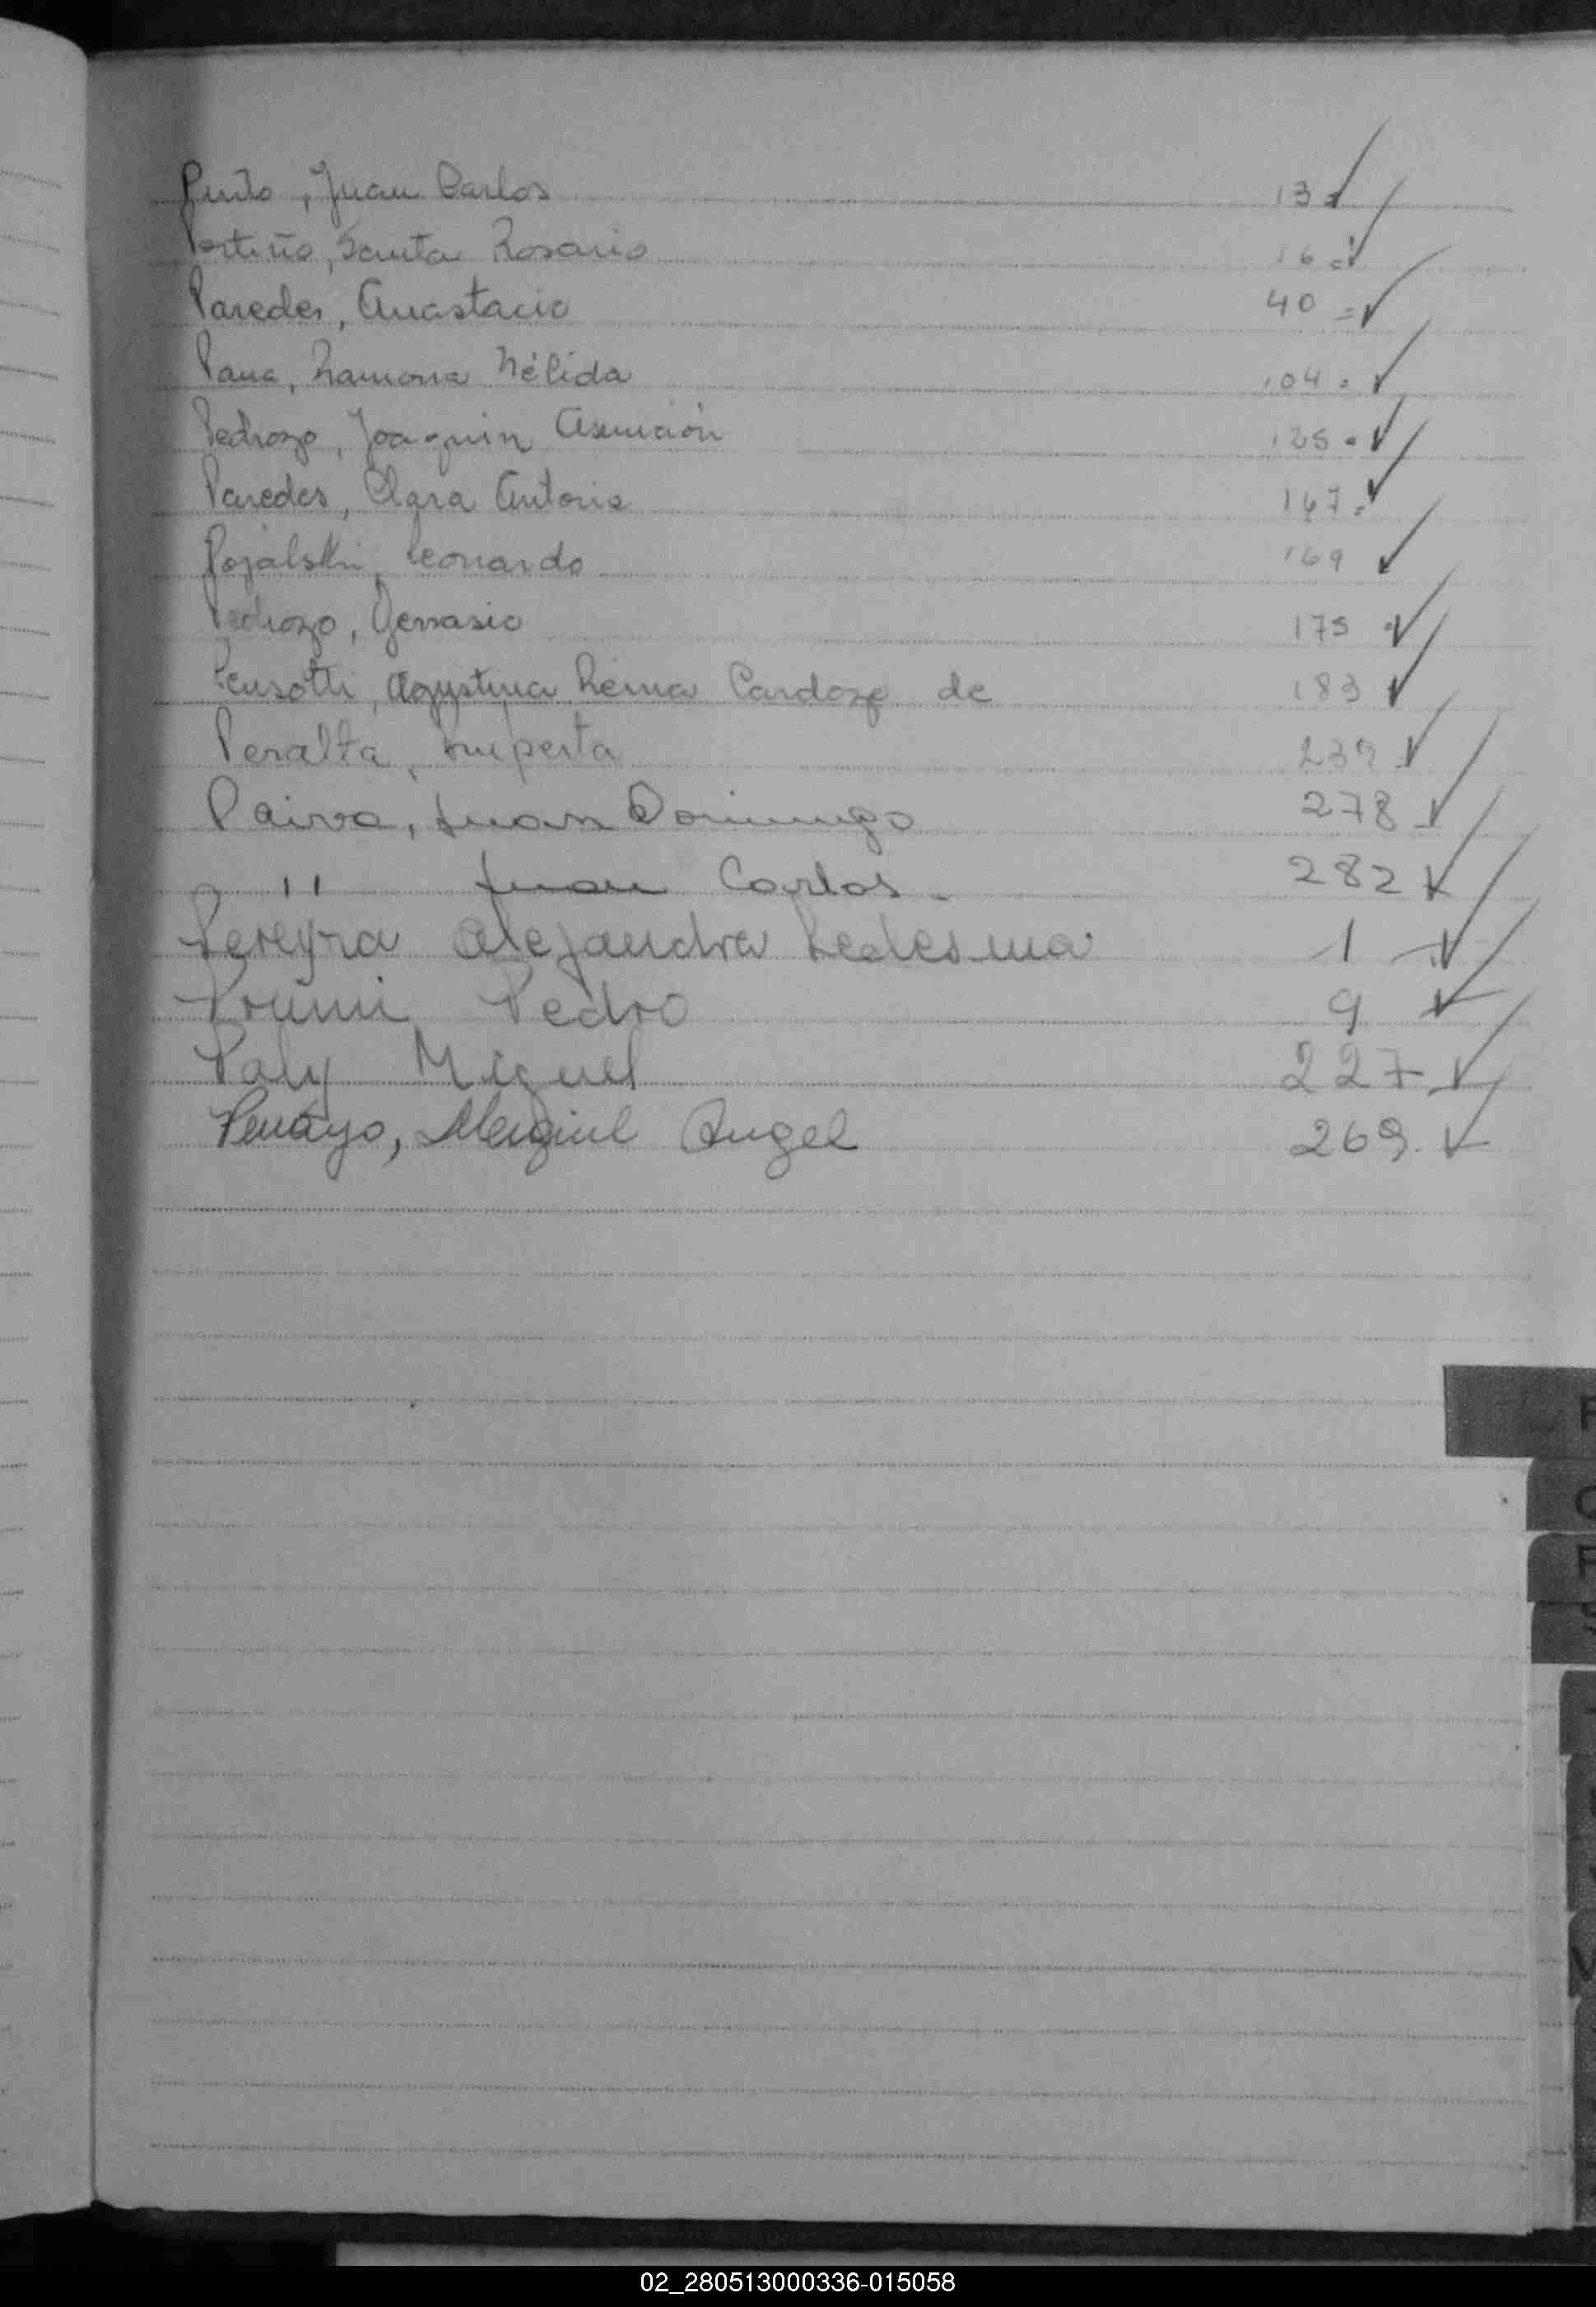 Pinto, Juan Carlos 13 =
Portiño, Santa Rosario 16 =
Paredes, Anastacio 40 =
Pana, Ramona Nélida 104 =
Pedrozo, Joaquin Asunción 125 =
Paredes, Clara Antonia 147 =
Pojalski, Leonardo 169
Pedrozo, Gervasio 175
Pensotti, Agustina Reina Cardozo de 183
Peralta, Ruperta 239
Paiva, Juan Domingo 278
" Juan Carlos. 282
Pereyra Alejandra Ledesma 1
Pedro 9
Paly Miguel 227
Penayo, Miguel Angel 269
P
02_280513000336-015058